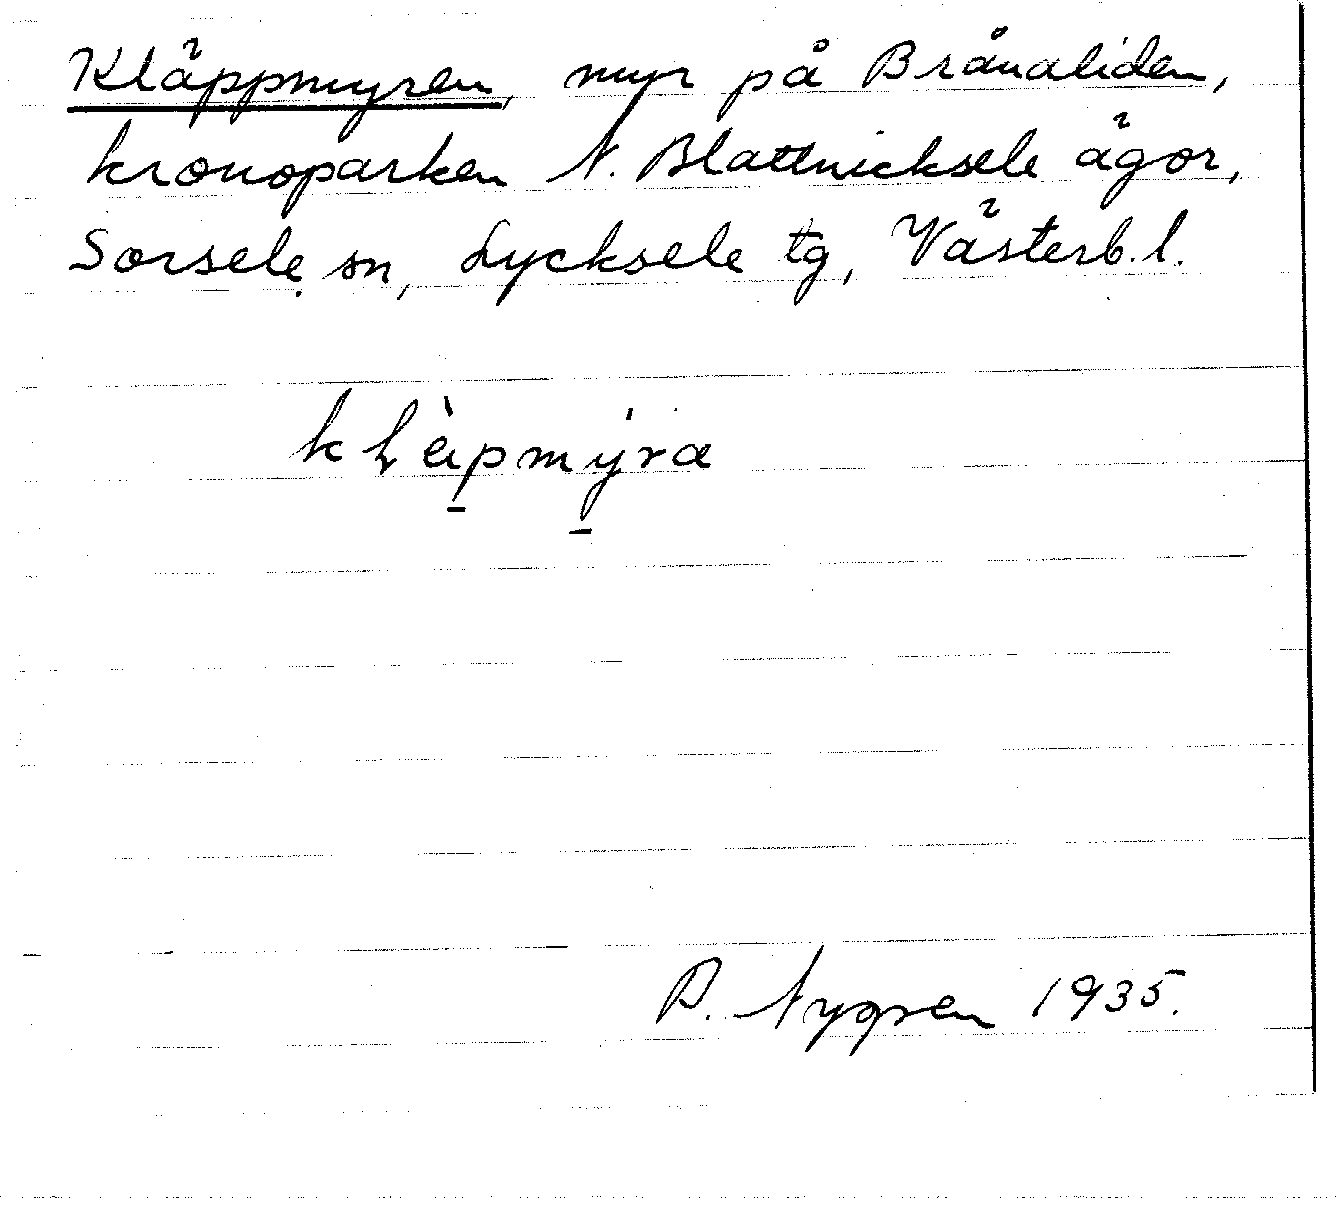 Kläppmyren, myr på Brånaliden,
kronoparken N. Blattnicksele ägor,
Sorsele sn, Lycksele tg, Västerb. l.
1935.